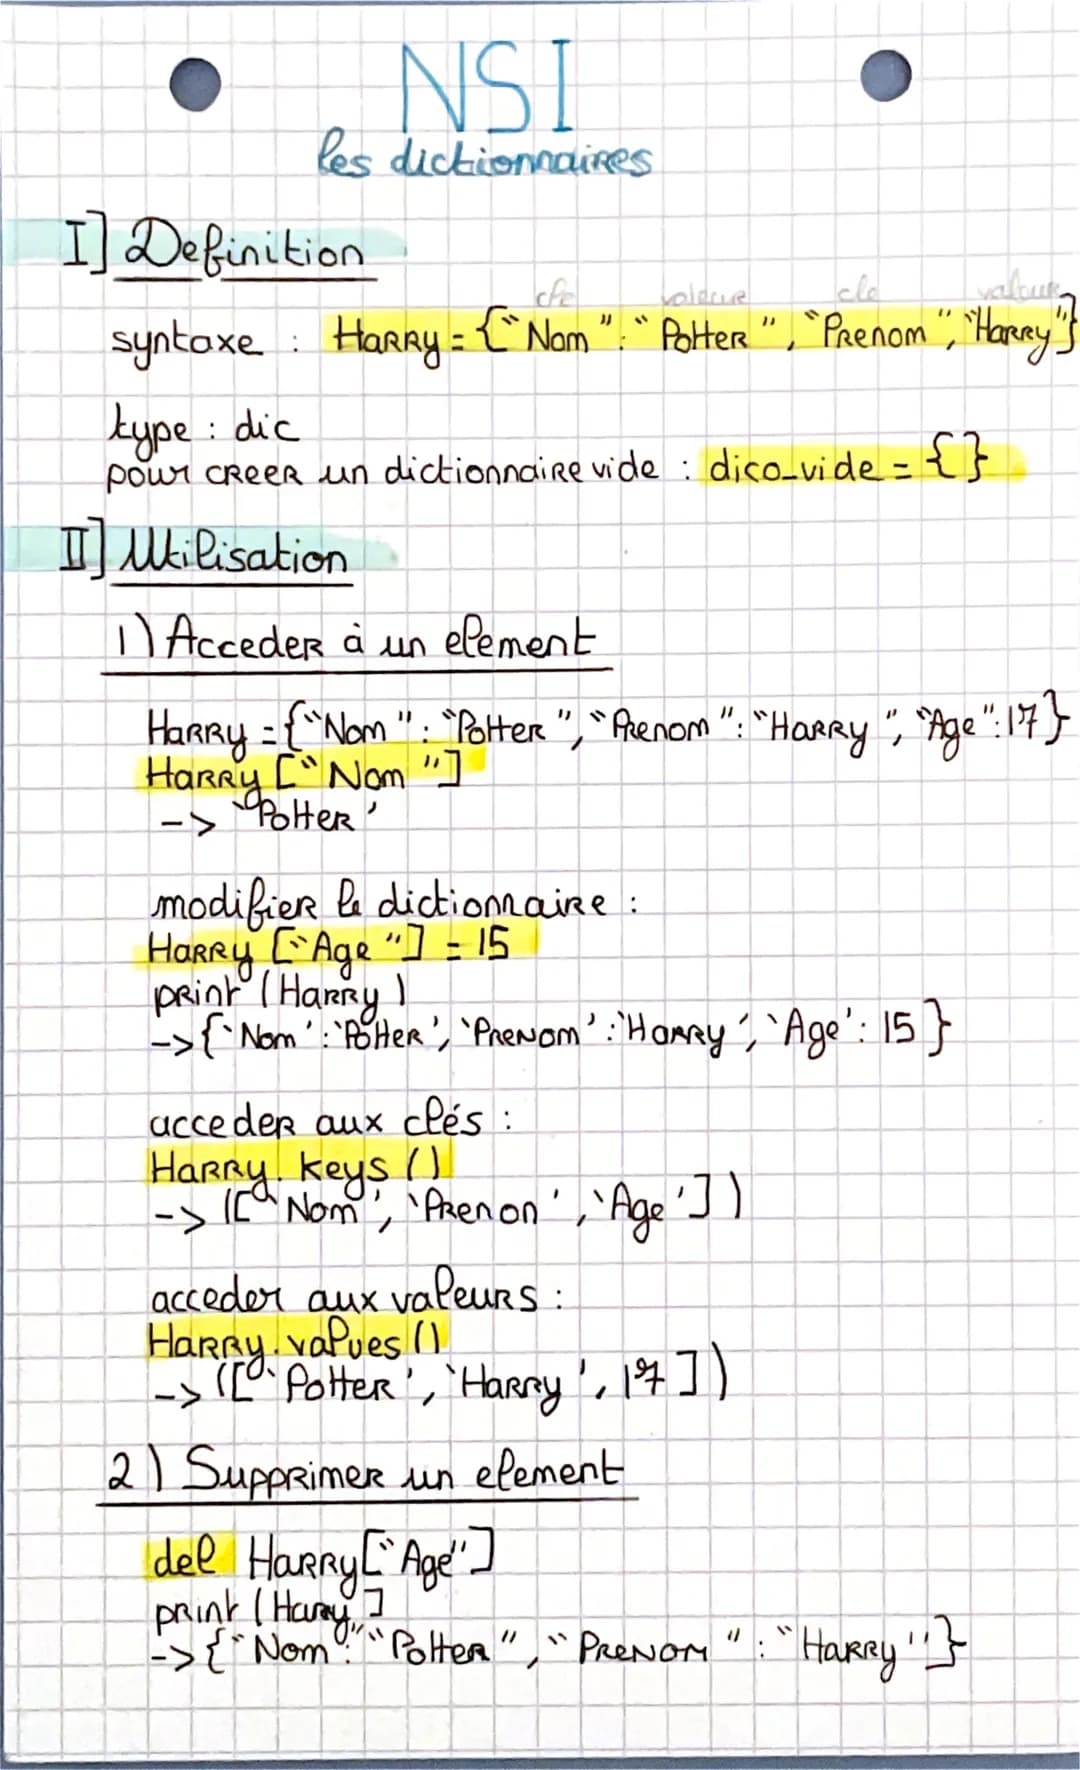 NSI
les dictionnaires
I] Definition
cle valeur cle valeur
syntaxe : Harry = {"Nom" : "Potter", "Prenom", "Harry"}
type : dic
pour creer un dictionnaire vide : dico_vide = {}
II] Utilisation
1) Acceder à un element
Harry = {"Nom" : "Potter", "Prenom" : "Harry", "Age" : 17}
Harry ["Nom"]
-> 'Potter'
modifier le dictionnaire :
Harry ["Age"] = 15
print (Harry)
-> {'Nom' : 'Potter', 'Prenom' : 'Harry', 'Age' : 15}
acceder aux clés :
Harry. keys ()
-> (['Nom', 'Prenon', 'Age'])
acceder aux valeurs :
Harry. values ()
-> (['Potter', 'Harry', 17])
2) Supprimer un element
del Harry["Age"]
print (Harry]
-> {"Nom" : "Potter", "Prenom" : "Harry"}